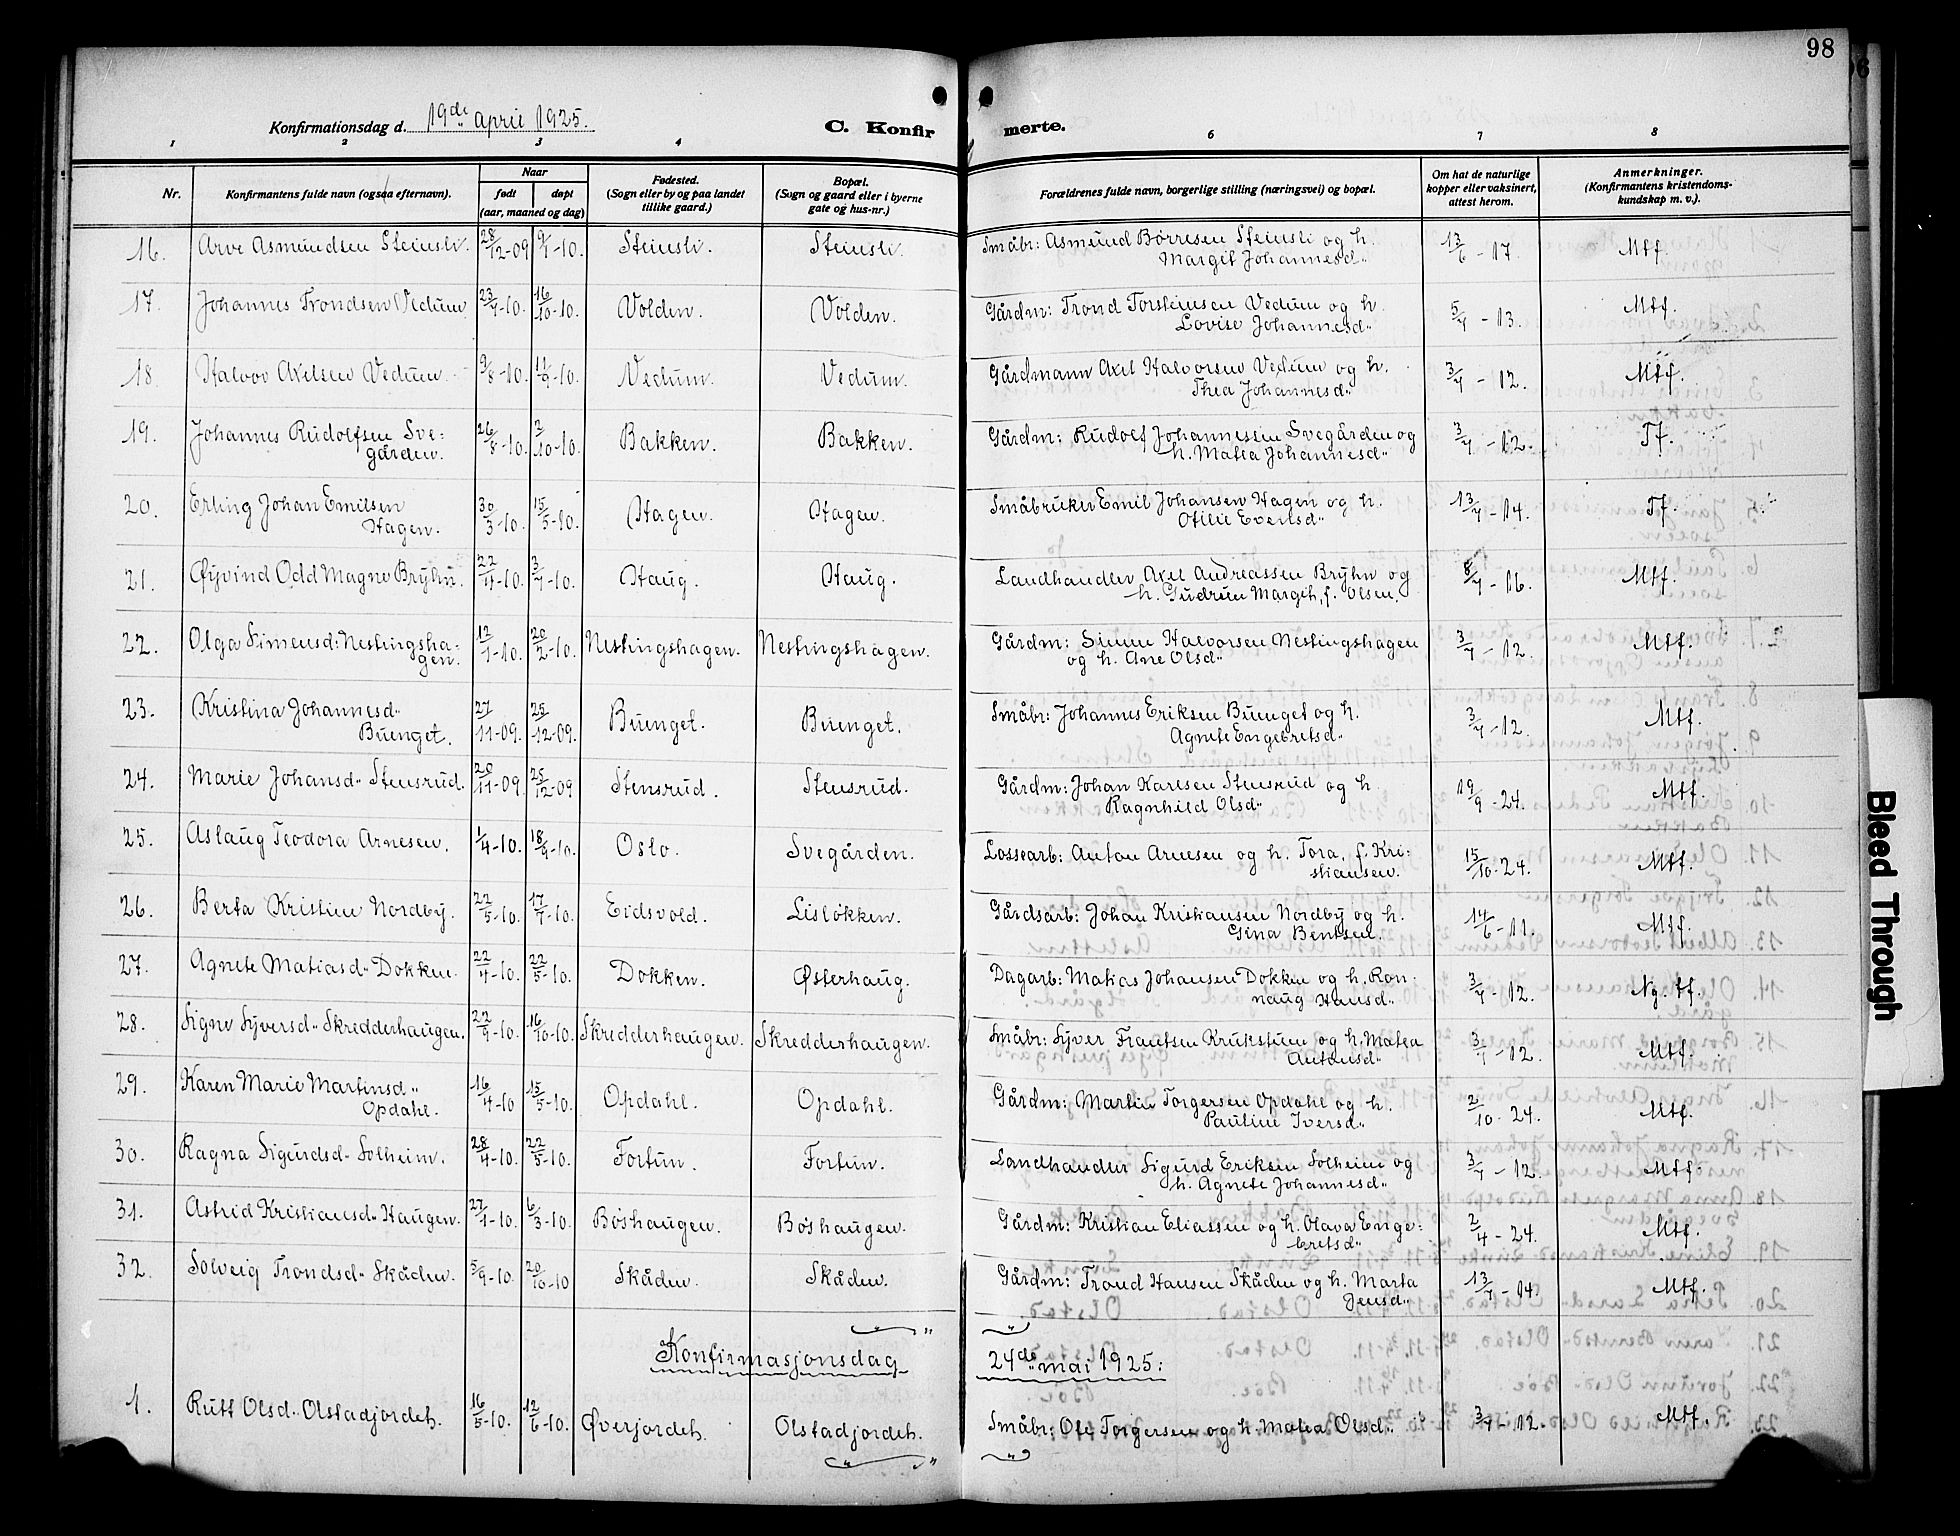 98
Konfirmationsdag d. 19de april 1925.
C. Konfirmerte.
1 2 3 4 6 7 8
Nr.
Konfirmantens fulde navn (ogsaa efternavn).
Naar
født
døpt
(aar, maaned og dag)
Fødested.
(Sogn eller by og paa landet
tillike gaard.)
Bopæl.
(Sogn og gaard eller i byerne
gate og hus-nr.)
Forældrenes fulde navn, borgerlige stilling (næringsvei) og bopæl.
Om hat de naturlige
kopper eller vaksinert,
attest herom.
Anmerkninger.
(Konfirmantens kristendoms-
kundskap m. v.).
16. Arve Asmundsen Steinsli. 28/12-09 9/1-10. Steinsli. Steinsli. Småbr: Asmund Børresen Steinsli og h. 13/6-17. Mtf.
Margit Johannesd"
17. Johannes Trondsen Vedum 23/7-10. 16/10-10. Volden. Volden. Gårdm: Trond Torsteinsen Vedum og h. 5/7-13. Mtf.
Lovise Johannesd"
18. Halvor Axelsen Vedum. 9/8-10. 11/9-10. Vedum. Vedum. Gårdmann Axel Halvorsen Vedum og h. 3/7-12. Mtf.
Thea Johannesd"
19. Johannes Rudolfsen Sve- 26/8-10. 2/10-10. Bakken. Bakken. Gårdm: Rudolf Johannessen Svegården og 3/7-12. Tf.
gården. h. Matea Johannesd"
20. Erling Johan Emilsen 30/3-10. 15/5-10. Hagen. Hagen. Småbruker Emil Johansen Hagen og h. 13/7-14. Tf.
Hagen. Otilie Evensd"
21. Øyvind Odd Magne Bryhn. 22/4-10. 3/7-10. Haug. Haug. Landhandler Axel Andreassen Bryhn og 8/7-16. Mtf.
h. Gudrun Margit, f. Olsen.
22. Olga Simensd: Nestingsha- 12/1-10. 20/2-10. Nestingshagen. Nestingshagen. Gårdm: Simen Halvorsen Nestingshagen 3/7-12. Mtf.
gen. og h. Ane Olsd"
23. Kristina Johannesd" 27/11-09. 25/12-09. Buenget. Buenget. Småbr: Johannes Eriksen Buenget og h. 3/7-12. Mtf.
Buenget. Agnete Engebretsd"
24. Marie Johansd" Stensrud. 20/11-09. 25/12-09 Stensrud. Stensrud. Gårdm: Johan Karlsen Stensrud og h. 19/9-24. Mtf.
Ragnhild Olsd"
25. Aslaug Teodora Arnesen. 1/4-10. 18/9-10. Oslo. Svegården. Lossearb: Anton Arnesen og h. Tora, f. Kri- 15/10-24. Mtf.
stiansen.
26. Berta Kristine Nordby. 22/5-10. 17/7-10. Eidsvold. Lisløkken. Gårdsarb: Johan Kristiansen Nordby og h. 14/6-11. Mtf.
Gina Bentsen.
27. Agnete Matiasd" Dokken. 22/4-10. 22/5-10. Dokken. Østerhaug. Dagarb: Matias Johansen Dokken og h. Ron- 3/7-12. Ng. tf.
naug Hansd"
28. Signe Syversd" Skredderhaugen. 22/9-10. 16/10-10. Skredderhaugen. Skredderhaugen. Småbr: Syver Frantsen Krukstuen og h. Matea 3/7-12. Mtf.
Antonsd"
29. Karen Marie Martinsd" 16/4-10 15/5-10. Opdahl. Opdahl. Gårdm: Martin Torgersen Opdahl og h. 2/10-24. Mtf.
Opdahl. Pauline Iversd"
30. Ragna Sigurdsd" Solheim. 28/4-10. 22/5-10. Fortun. Fortun. Landhandler Sigurd Eriksen Solheim og 3/7-12. Mtf.
h. Agnete Johannesd"
31. Astrid Kristiansd" Haugen. 27/1-10. 6/3-10. Bøshaugen. Bøshaugen. Gårdm: Kristian Eliassen og h. Olava Enge- 2/4-24. Mtf.
bretsd"
32. Solveig Trondsd" Skåden. 5/9-10. 20/10-10 Skåden. Skåden. Gårdm: Trond Hansen Skåden og h. Marta 13/7-14. Mtf.
Jensd"
Konfirmasjonsdag 24de mai 1925:
1. Rutt Olsd. Olstadjordet. 16/5-10. 12/6-10. Øverjordet. Olstadjordet. Småbr: Ole Torgersen og h. Matea Olsd" 3/7-12. Mtf.
Bleed Through